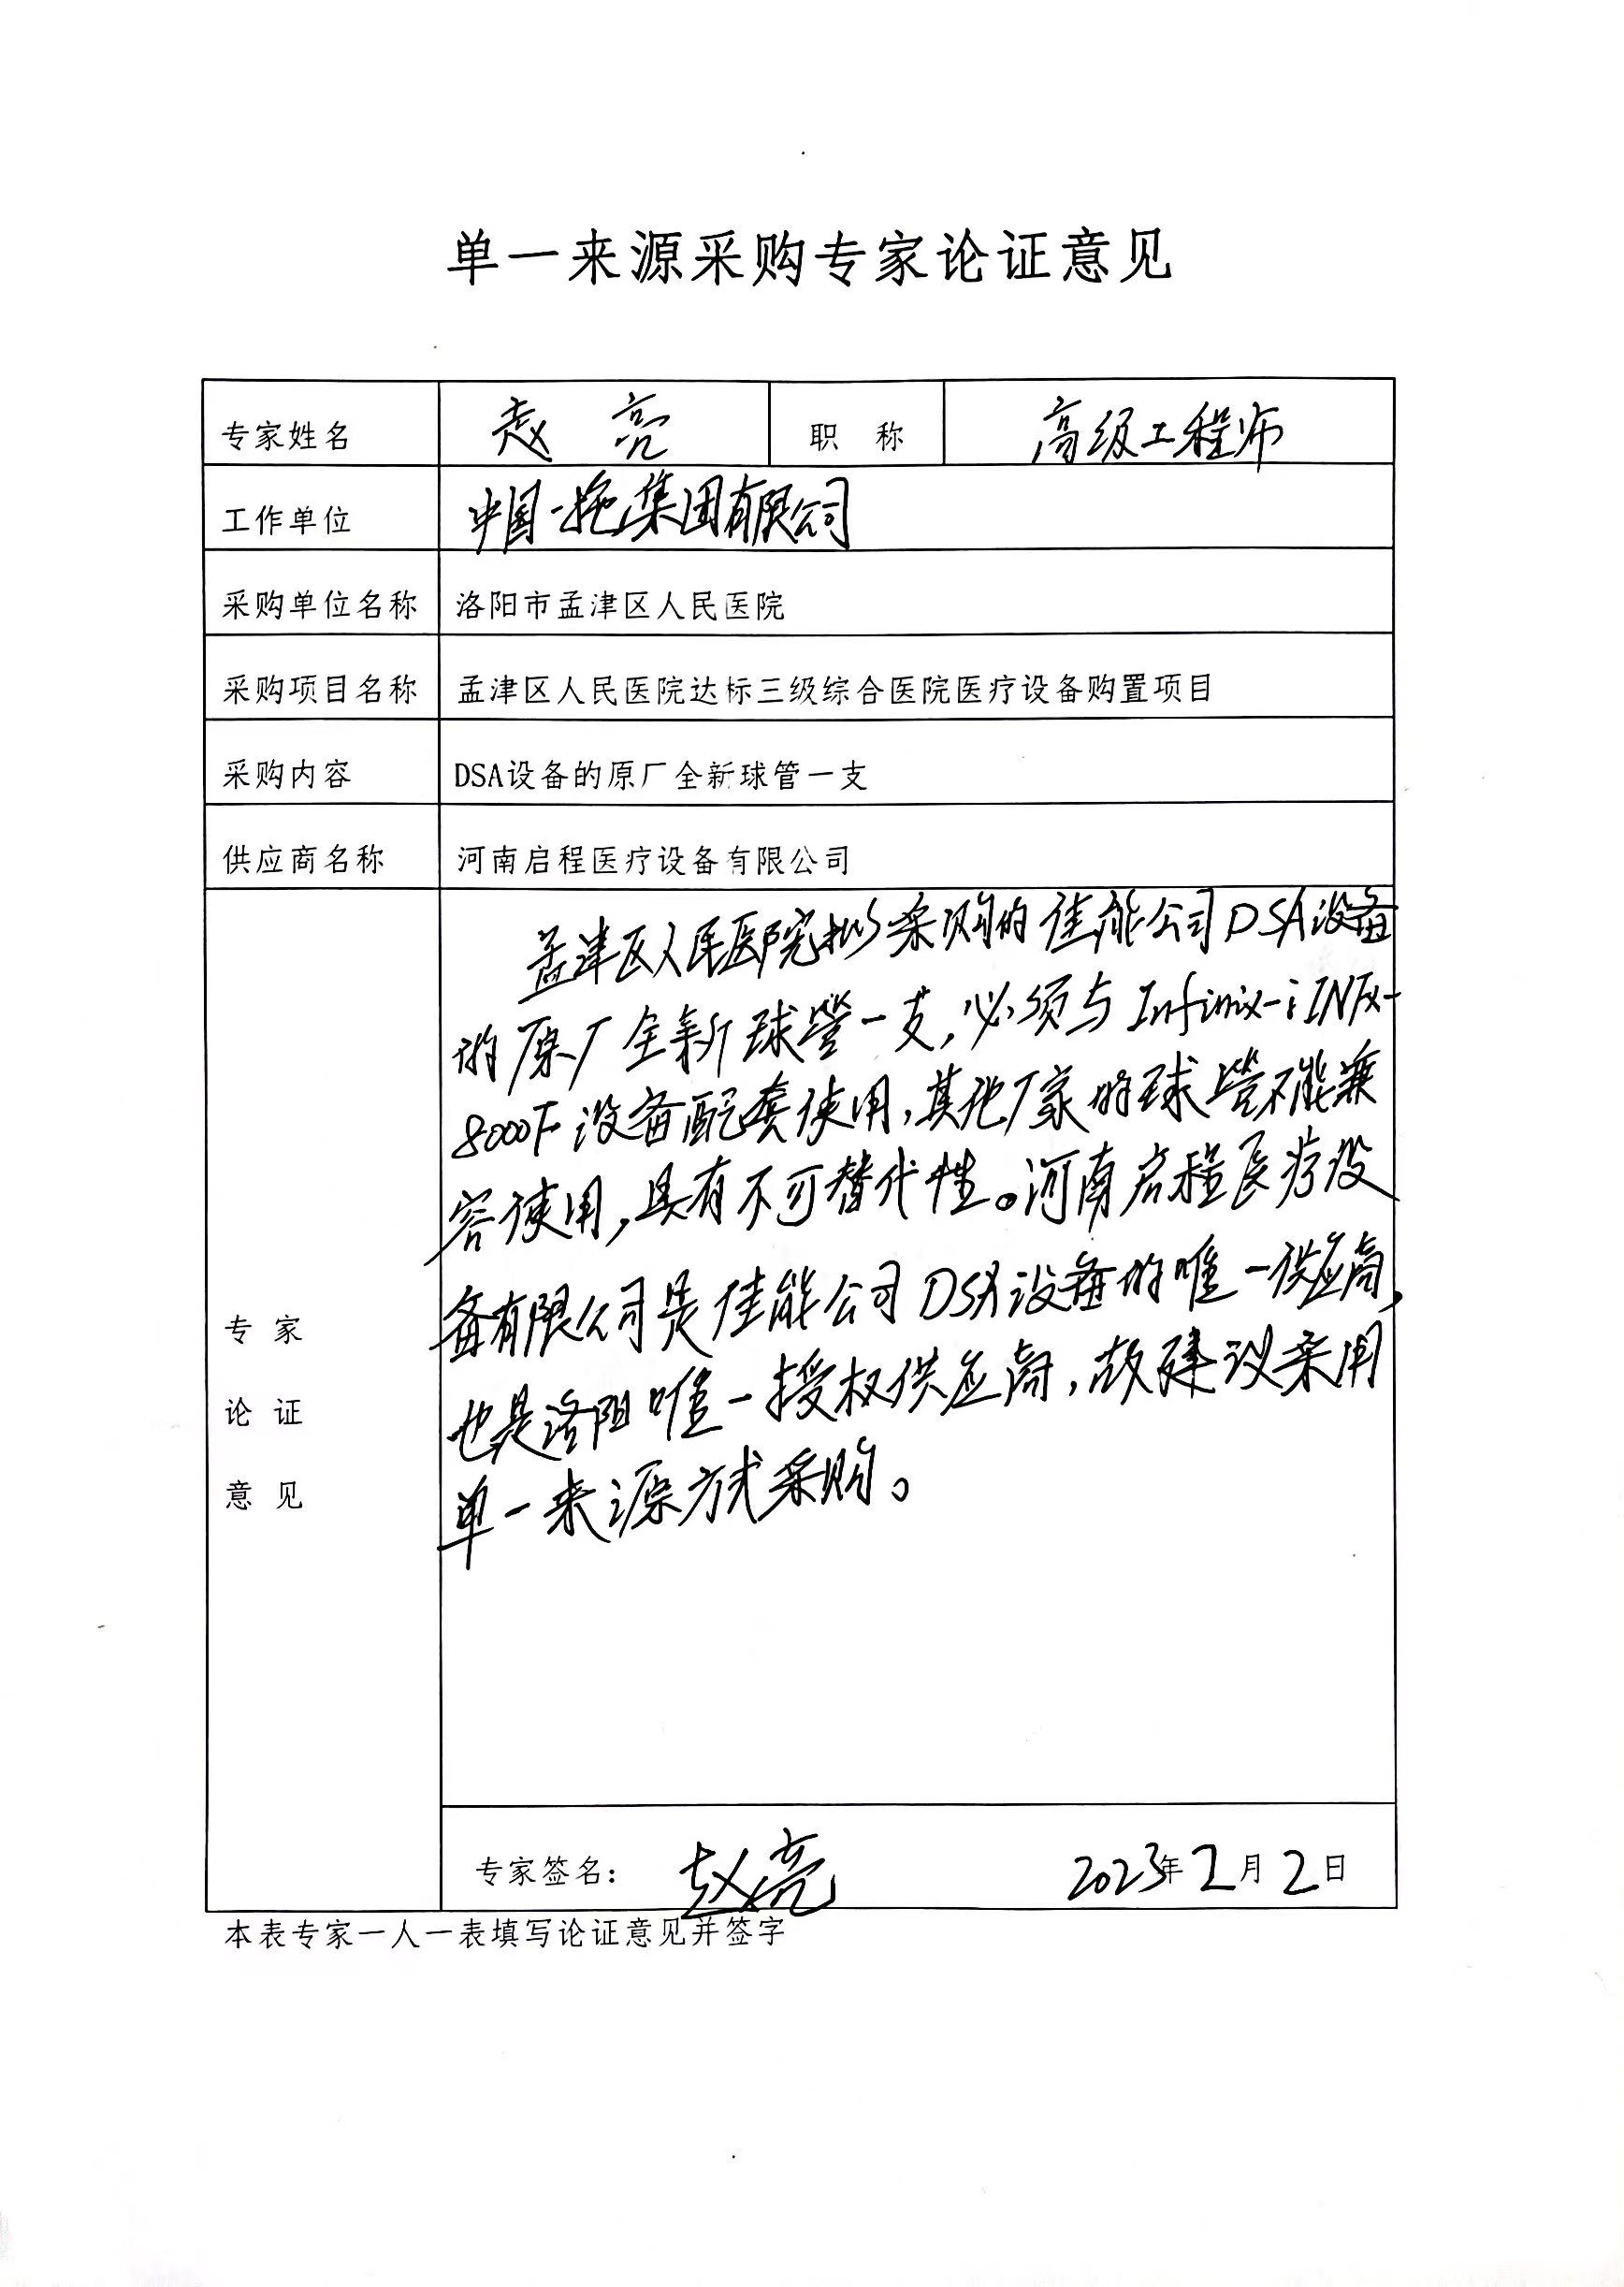 单一来源采购专家论证意见
专家姓名 赵亮 职称 高级工程师
工作单位 中国一拖集团有限公司
采购单位名称 洛阳市孟津区人民医院
采购项目名称 孟津区人民医院达标三级综合医院医疗设备购置项目
采购内容 DSA设备的原厂全新球管一支
供应商名称 河南启程医疗设备有限公司
孟津区人民医院拟采购的佳能公司DSA设备
的原厂全新球管一支,必须与Infinix-i INFX-
8000F设备配套使用,其他厂家的球管不能兼
容使用,具有不可替代性。河南启程医疗设
备有限公司是佳能公司DSA设备的唯一供应商,
也是洛阳唯一授权供应商,故建议采用
单一来源方式采购。
专家
论证
意见
专家签名: 赵亮 2023年2月2日
本表专家一人一表填写论证意见并签字